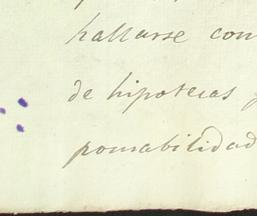 hallarse con
de hipotecas
ponsabilidad